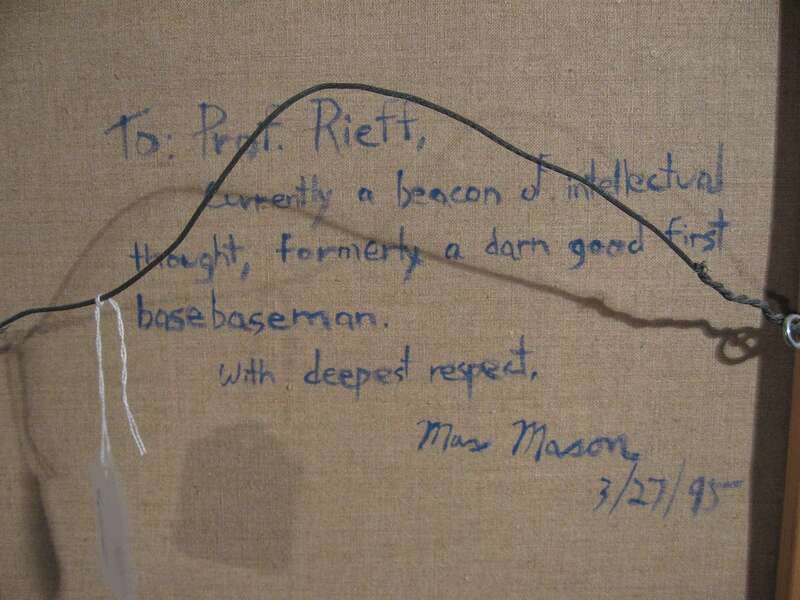 To: Prof. Rieff,
Currently a beacon of intellectual
thought, formerly a darn good first
basebaseman.
With deepest respect,
Max Mason
3/27/95